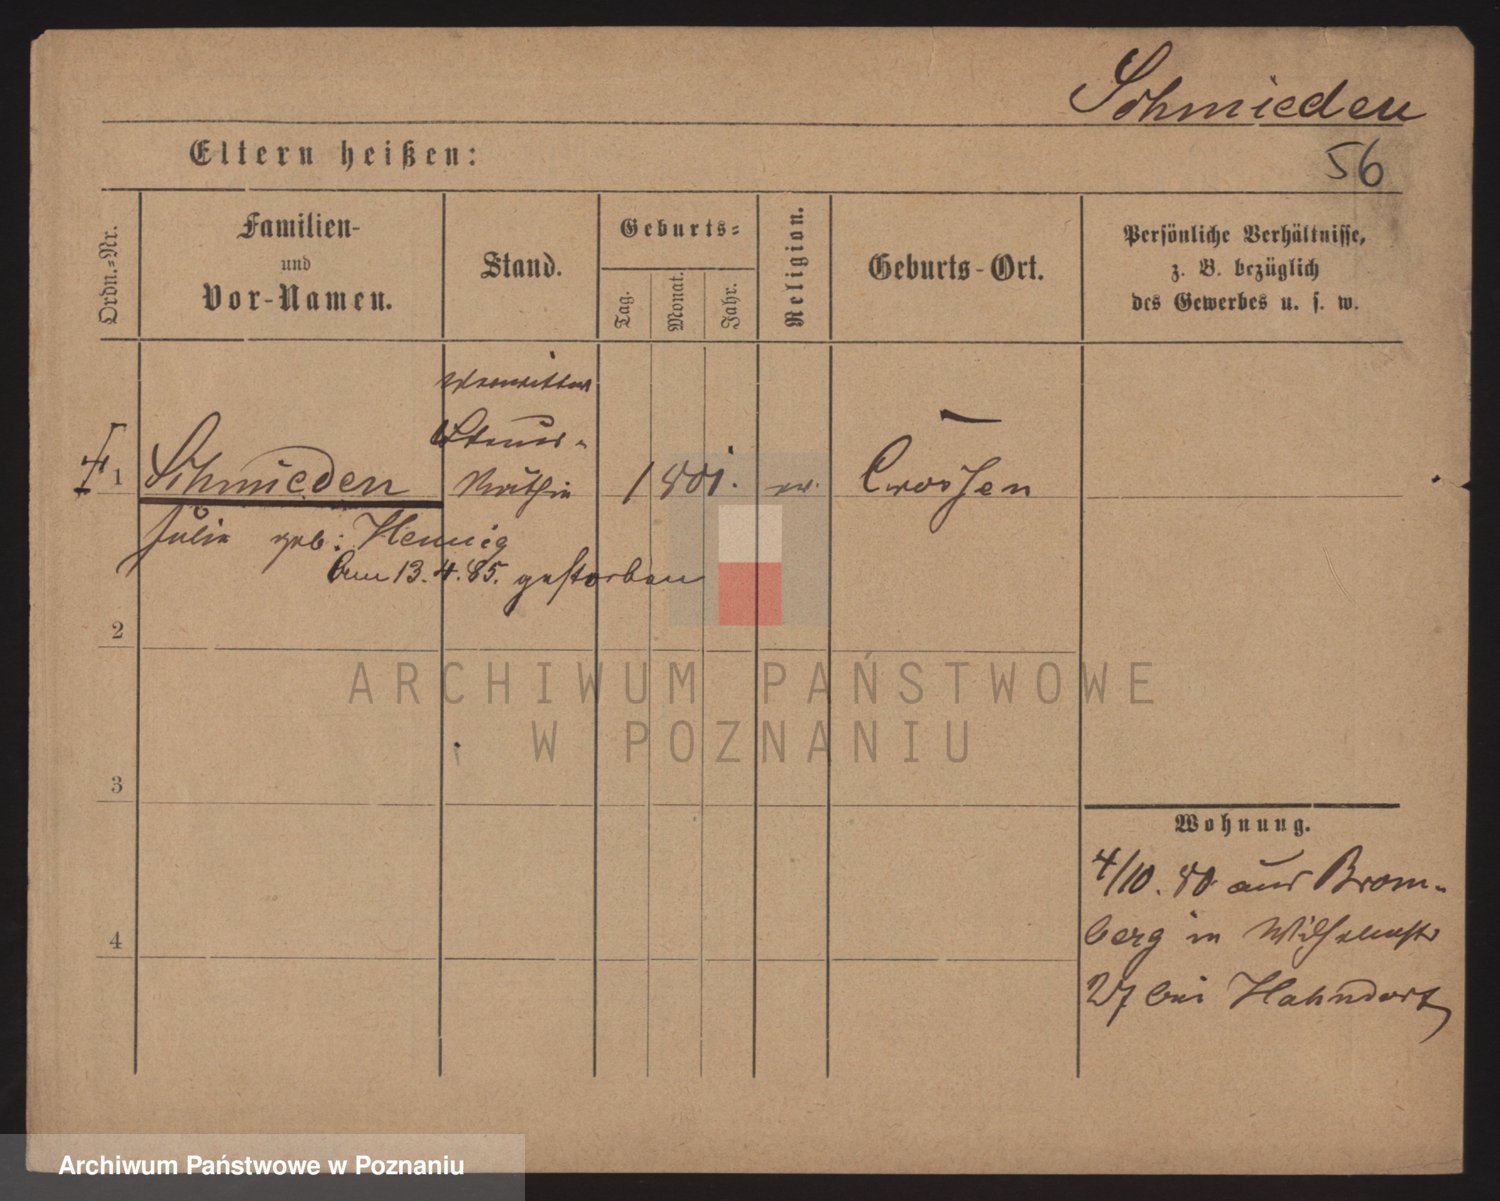 Schmieden
56
Eltern heißen:
Ordn.-Nr.
Familien-
und
Vor-Namen.
Stand.
Geburts-
Tag.
Monat.
Jahr.
Religion.
Geburts-Ort.
Persönliche Verhältnisse,
z. B. bezüglich
des Gewerbes u. s. w.
Steuer-
1 Schmieden Räthin 1801. ev. Crossen
Julie geb: Hennig
am 13.4.85. gestorben
2
ARCHIWUM PAŃSTWOWE
W POZNANIU
3
Wohnung.
4/10. 80 aus Brom-
berg in Wilhelmstr
4
27 bei Hahndorf
Archiwum Państwowe w Poznaniu